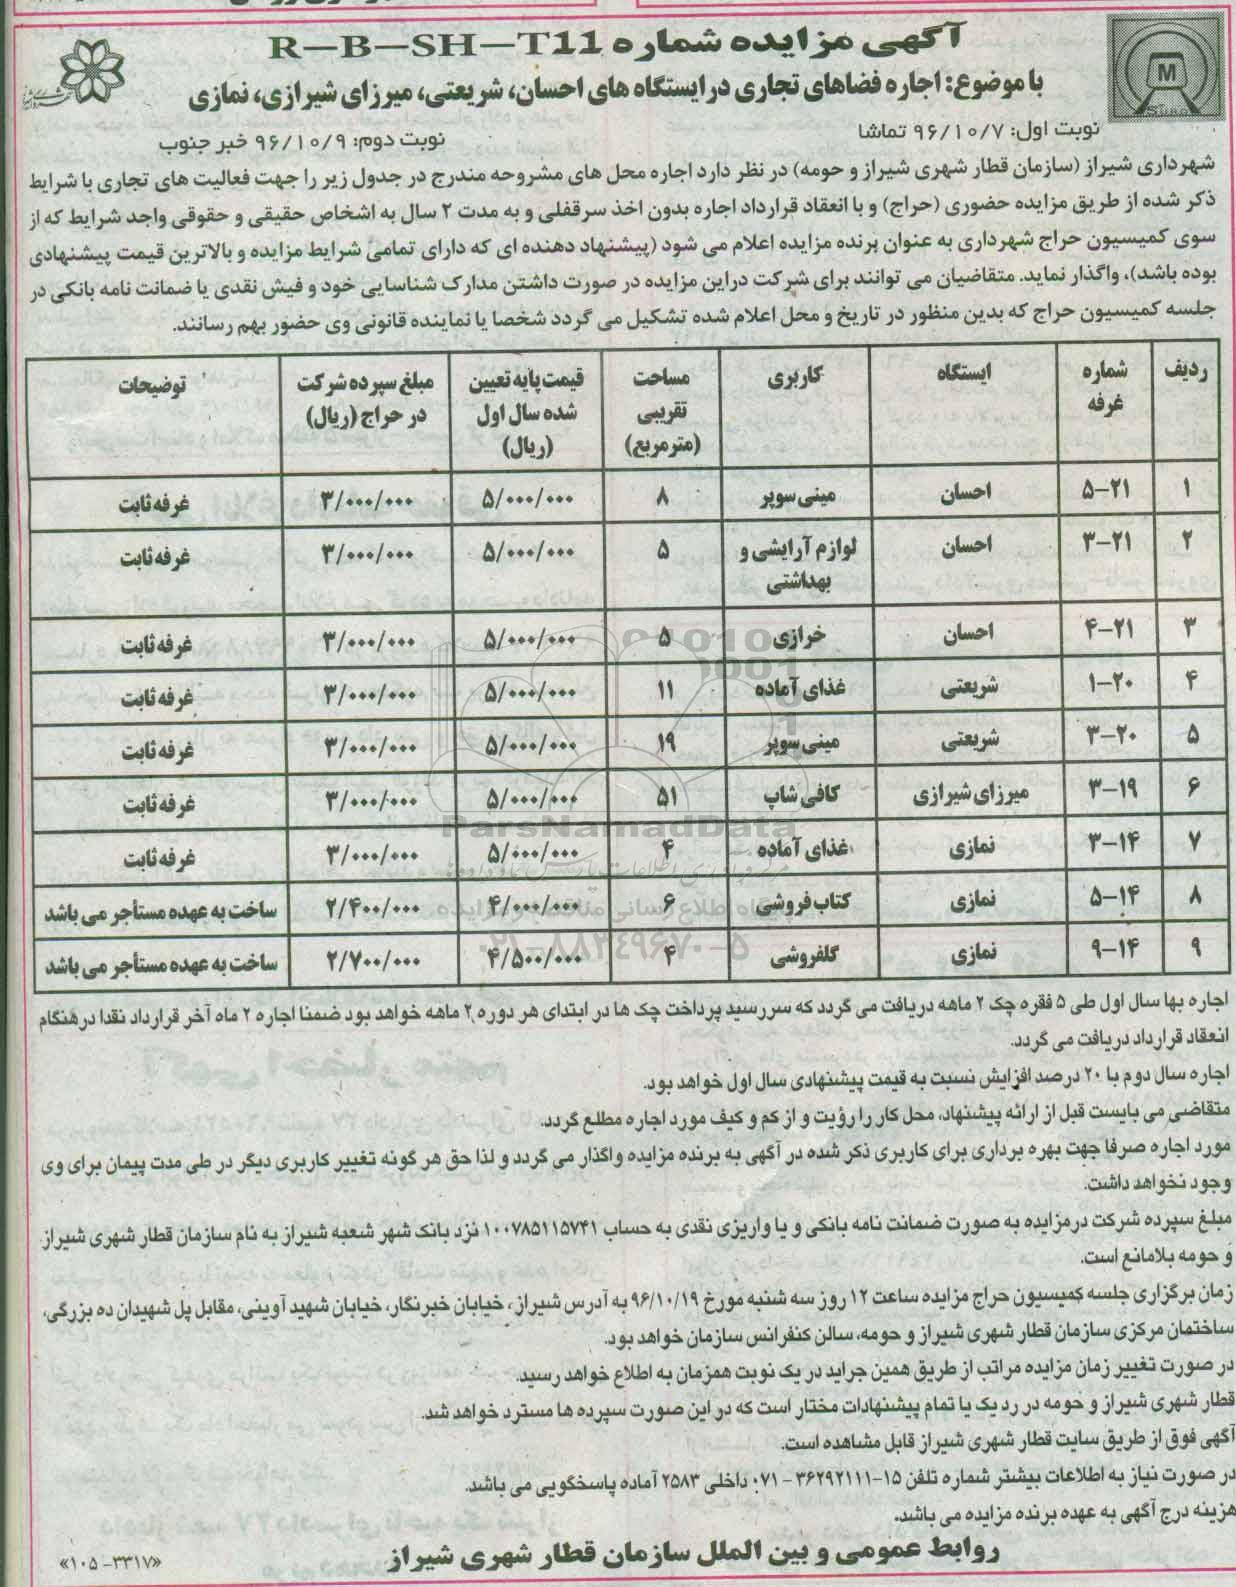 آگهی مزایده شماره R-B-SH-T11
با موضوع: اجاره فضاهای تجاری در ایستگاه های احسان، شریعتی، میرزای شیرازی، نمازی
نوبت اول: ۹۶/۱۰/۷ تماشا
نوبت دوم: ۹۶/۱۰/۹ خبر جنوب
شهرداری شیراز (سازمان قطار شهری شیراز و حومه) در نظر دارد اجاره محل های مشروحه مندرج در جدول زیر را جهت فعالیت های تجاری با شرایط
ذکر شده از طریق مزایده حضوری (حراج) و با انعقاد قرارداد اجاره بدون اخذ سرقفلی و به مدت ۲ سال به اشخاص حقیقی و حقوقی واجد شرایط که از
سوی کمیسیون حراج شهرداری به عنوان برنده مزایده اعلام می شود (پیشنهاد دهنده ای که دارای تمامی شرایط مزایده و بالاترین قیمت پیشنهادی
بوده باشد)، واگذار نماید. متقاضیان می توانند برای شرکت دراین مزایده در صورت داشتن مدارک شناسایی خود و فیش نقدی یا ضمانت نامه بانکی در
جلسه کمیسیون حراج که بدین منظور در تاریخ و محل اعلام شده تشکیل می گردد شخصا یا نماینده قانونی وی حضور بهم رسانند.
ردیف | شماره غرفه | ایستگاه | کاربری | مساحت تقریبی (مترمربع) | قیمت پایه تعیین شده سال اول (ریال) | مبلغ سپرده شرکت در حراج (ریال) | توضیحات
۱ | ۵-۲۱ | احسان | مینی سوپر | ۸ | ۵/۰۰۰/۰۰۰ | ۳/۰۰۰/۰۰۰ | غرفه ثابت
۲ | ۳-۲۱ | احسان | لوازم آرایشی و بهداشتی | ۵ | ۵/۰۰۰/۰۰۰ | ۳/۰۰۰/۰۰۰ | غرفه ثابت
۳ | ۴-۲۱ | احسان | خرازی | ۵ | ۵/۰۰۰/۰۰۰ | ۳/۰۰۰/۰۰۰ | غرفه ثابت
۴ | ۱-۲۰ | شریعتی | غذای آماده | ۱۱ | ۵/۰۰۰/۰۰۰ | ۳/۰۰۰/۰۰۰ | غرفه ثابت
۵ | ۳-۲۰ | شریعتی | مینی سوپر | ۱۹ | ۵/۰۰۰/۰۰۰ | ۳/۰۰۰/۰۰۰ | غرفه ثابت
۶ | ۳-۱۹ | میرزای شیرازی | کافی شاپ | ۵۱ | ۵/۰۰۰/۰۰۰ | ۳/۰۰۰/۰۰۰ | غرفه ثابت
۷ | ۳-۱۴ | نمازی | غذای آماده | ۴ | ۵/۰۰۰/۰۰۰ | ۳/۰۰۰/۰۰۰ | غرفه ثابت
۸ | ۵-۱۴ | نمازی | کتاب فروشی | ۶ | ۴/۰۰۰/۰۰۰ | ۲/۴۰۰/۰۰۰ | ساخت به عهده مستأجر می باشد
۹ | ۹-۱۴ | نمازی | گلفروشی | ۴ | ۴/۵۰۰/۰۰۰ | ۲/۷۰۰/۰۰۰ | ساخت به عهده مستأجر می باشد
ParsNamadData
۰۲۱-۸۸۳۴۹۶۷۰-۵
اجاره بها سال اول طی ۵ فقره چک ۲ ماهه دریافت می گردد که سررسید پرداخت چک ها در ابتدای هر دوره ۲ ماهه خواهد بود ضمنا اجاره ۲ ماه آخر قرارداد نقدا درهنگام
انعقاد قرارداد دریافت می گردد.
اجاره سال دوم با ۲۰ درصد افزایش نسبت به قیمت پیشنهادی سال اول خواهد بود.
متقاضی می بایست قبل از ارائه پیشنهاد، محل کار را رؤیت و از کم و کیف مورد اجاره مطلع گردد.
مورد اجاره صرفا جهت بهره برداری برای کاربری ذکر شده در آگهی به برنده مزایده واگذار می گردد و لذا حق هر گونه تغییر کاربری دیگر در طی مدت پیمان برای وی
وجود نخواهد داشت.
مبلغ سپرده شرکت درمزایده به صورت ضمانت نامه بانکی و یا واریزی نقدی به حساب ۱۰۰۷۸۵۱۱۵۷۴۱ نزد بانک شهر شعبه شیراز به نام سازمان قطار شهری شیراز
و حومه بلامانع است.
زمان برگزاری جلسه کمیسیون حراج مزایده ساعت ۱۲ روز سه شنبه مورخ ۹۶/۱۰/۱۹ به آدرس شیراز، خیابان خبرنگار، خیابان شهید آوینی، مقابل پل شهیدان ده بزرگی،
ساختمان مرکزی سازمان قطار شهری شیراز و حومه، سالن کنفرانس سازمان خواهد بود.
در صورت تغییر زمان مزایده مراتب از طریق همین جراید در یک نوبت همزمان به اطلاع خواهد رسید.
قطار شهری شیراز و حومه در رد یک یا تمام پیشنهادات مختار است که در این صورت سپرده ها مسترد خواهد شد.
آگهی فوق از طریق سایت قطار شهری شیراز قابل مشاهده است.
در صورت نیاز به اطلاعات بیشتر شماره تلفن ۱۵-۳۶۲۹۲۱۱۱-۰۷۱ داخلی ۲۵۸۳ آماده پاسخگویی می باشد.
هزینه درج آگهی به عهده برنده مزایده می باشد.
روابط عمومی و بین الملل سازمان قطار شهری شیراز
«۱۰۵-۳۳۱۷»